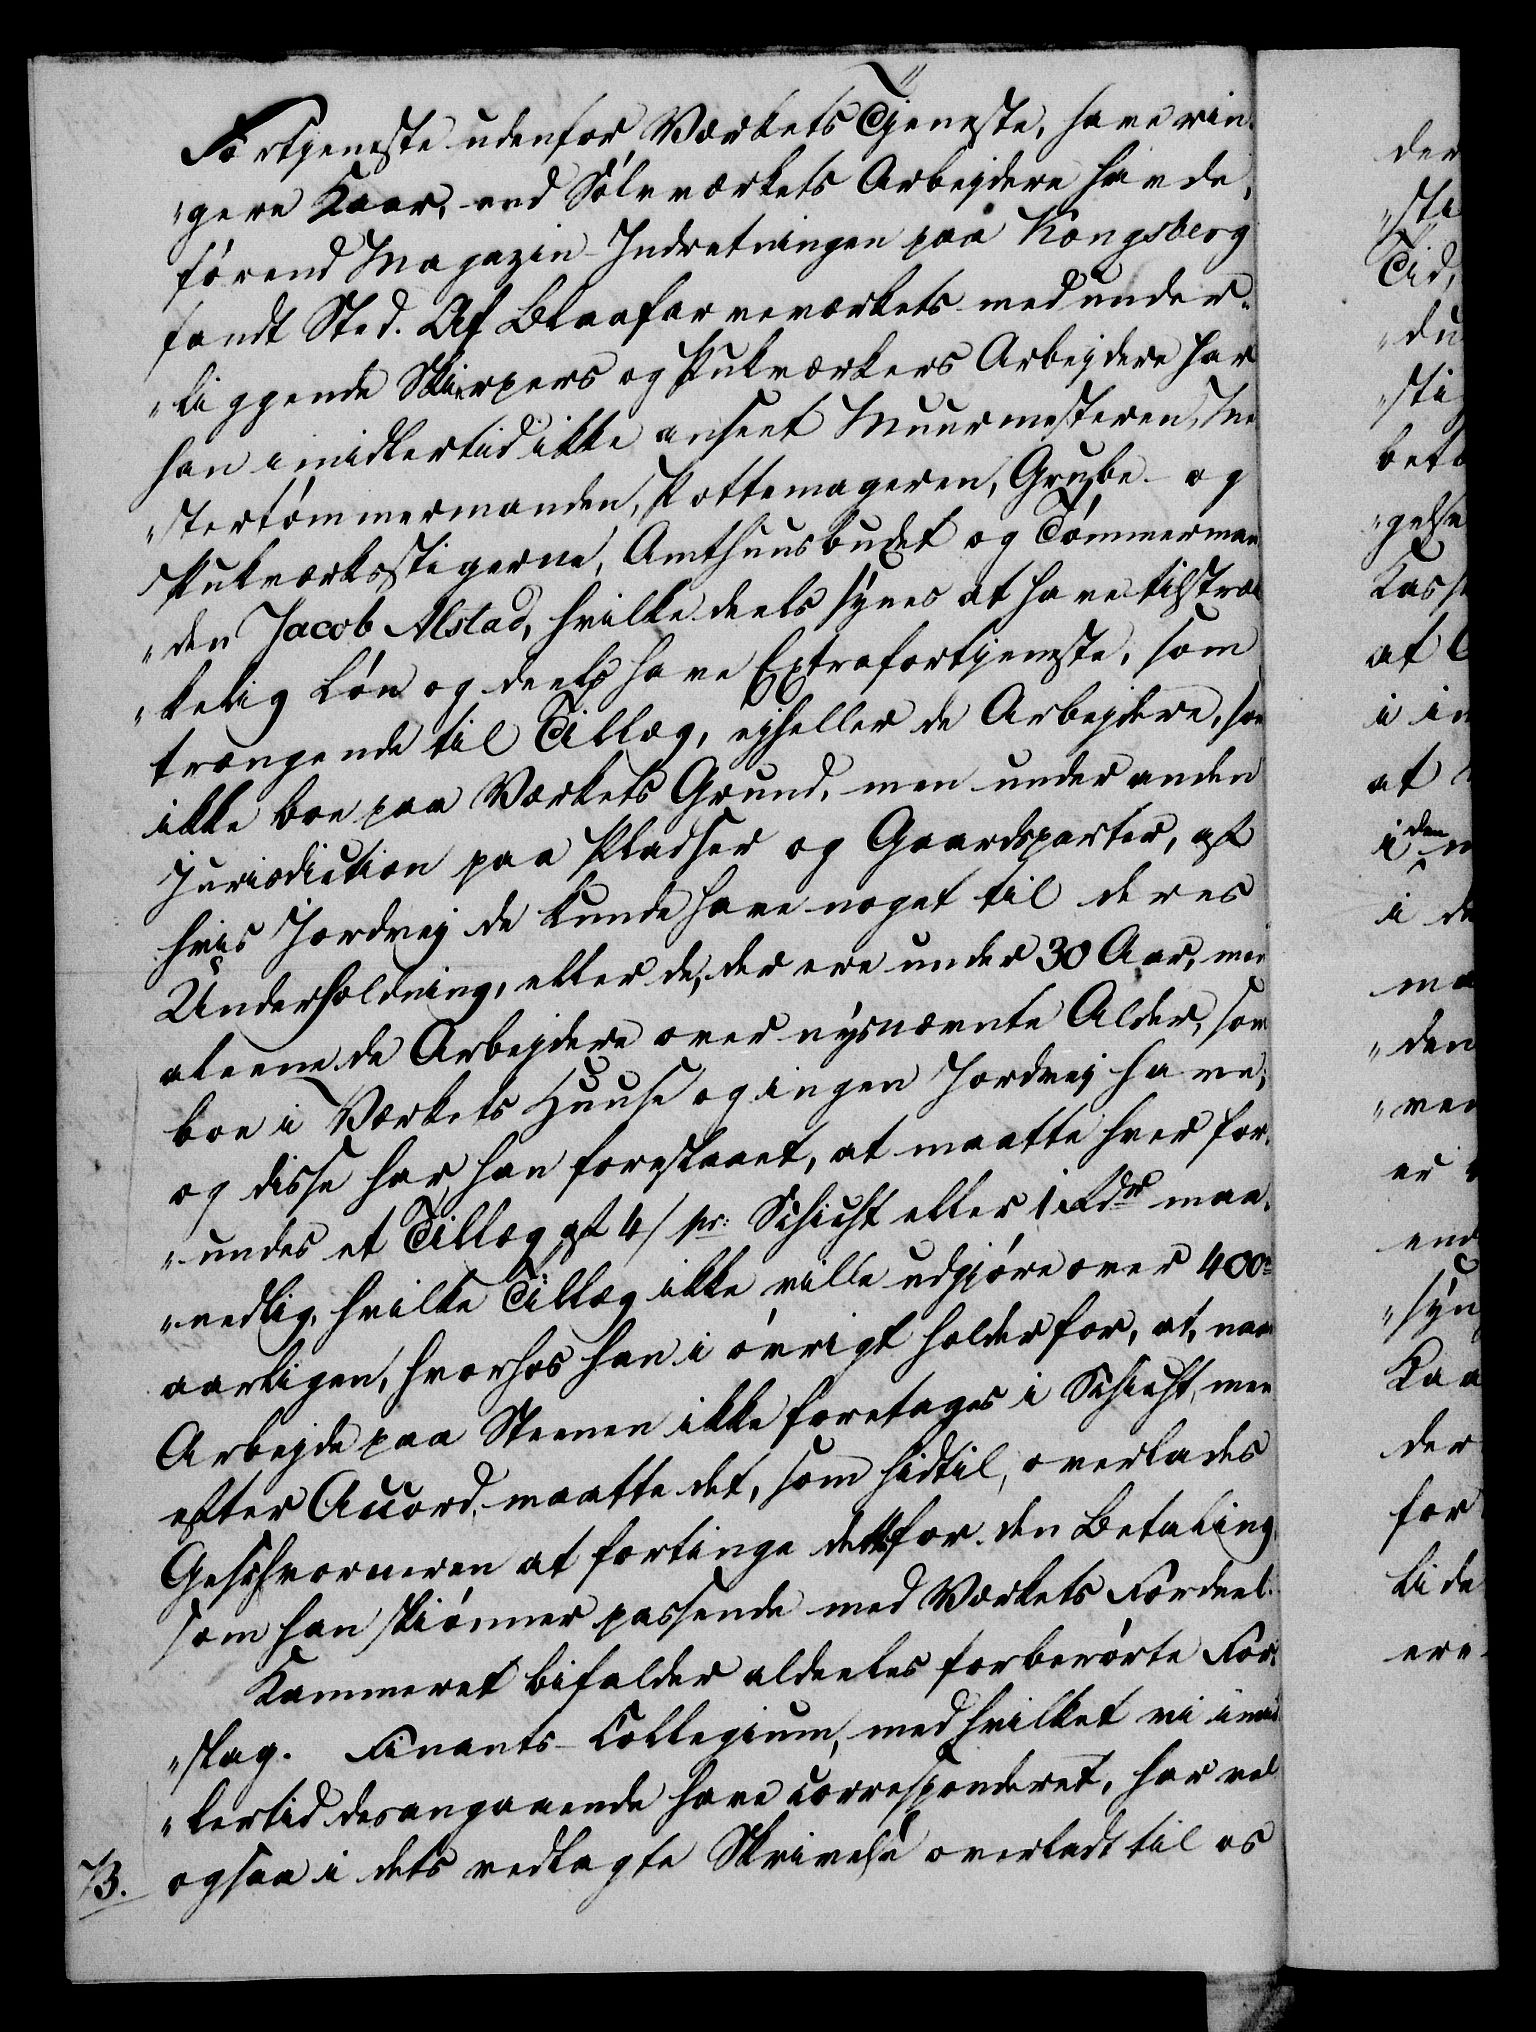 Fortjeneste udenfor Værkets Tjeneste, have rin-
"gere Kaar, end Sølvværkets Arbejdere havde,
førend Magazin-Indretningen paa Kongsberg
fandt Sted. Af Blaafarveværkets med under-
"liggende Skierpers og Pukværkers Arbejdere har
han imidlertid ikke anseet Muurmesteren, Me
"stertømmermanden, Pottemageren, Grube- og
Pukværksstigerne, Amthuusbudet og Tømmerman
"den Jacob Alstad, hvilke deels synes at have tilstræk
"kelig Løn og deels have Extrafortjeneste, som
trængende til Tillæg, ejheller de Arbejdere, som
ikke boe paa Værkets Grund, men under anden
Jurisdiction paa Pladser og Gaardsparter, af
hvis Jordvej de kunde have noget til deres
Underholdning, eller de, der ere under 30 Aar, men
aleene de Arbejdere over nysnævnte Alder, som
boe i Værkets Huuse og ingen Jordvej have;
og disse har han foreslaaet, at maatte hver for-
"undes et Tillæg af 4 s pr: Schicht eller 1 Rdr maa-
"nedlig, hvilke Tillæg ikke ville udgjøre over 400
aarligen, hvorhos han i øvrigt holder for, at, naar
Arbejde paa Steenen ikke foretages i Schicht, men
efter Accord, maatte det, som hidtil, overlades
Geschvorneren at fortinge dette for den Betaling,
som han skiønner passende med Værkets Fordeel.
Kammeret bifalder aldeeles forberørte For-
"slag. Finants-Collegium, med hvilket vi imid
"lertid desangaaende have corresponderet, har vel
ogsaa i dets vedlagte Skrivelse overladt til os
B.
der
"sti
Tid,
"du
"sti
bet
"gelse
Kass
af
i in
at
i den
i de
ma
"den
"ver
er
end
"syn
Kaa
der
for
lide
ere